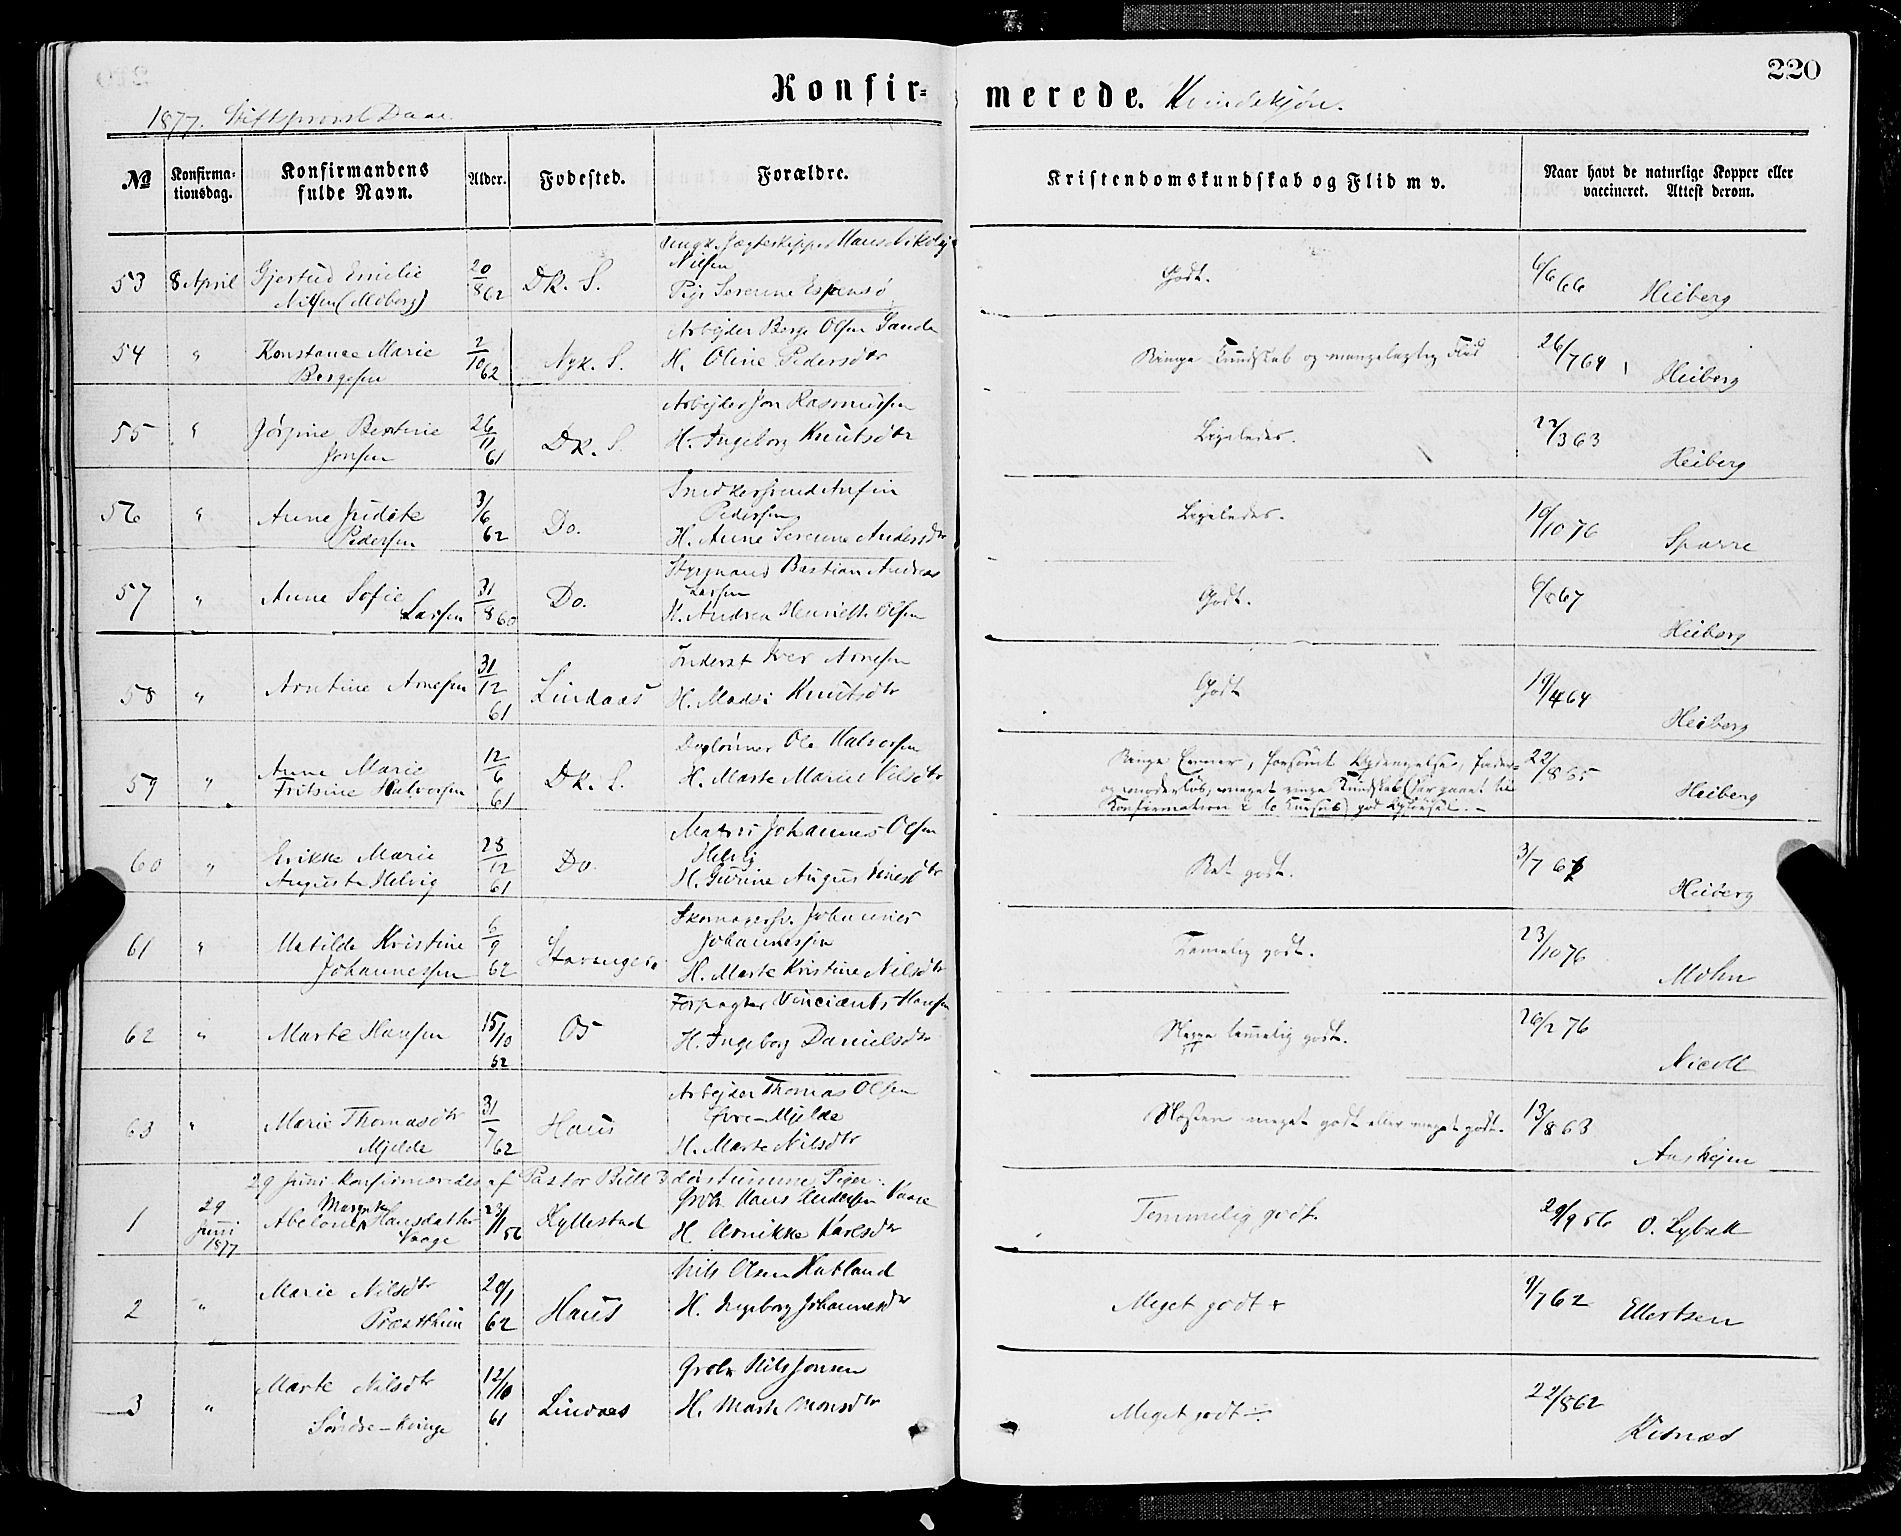 220
Konfir=
merede. Kvindekjön.
1877. Stiftsprovst Daae.
No Konfirma-tionsdag. Konfirmandens fulde Navn. Alder. Fodested. Forældre. Kristendomskundskab og Flid m v. Naar havt de naturlige Kopper eller vaccineret. Attest derom.
53 8 April Gjertrud Emilie 20/8 62 Dk. S. Nilsen
Godt. 6/6 66 Heiberg
54 " Konstance Marie Børgesen 2/10 62 Nyk. S. Arbejder Børge Olsen Sande
H. Oline Pedersdtr
Ringe Kundskab og mangelagtig Flid 26/7 64 Heiberg
55 " Jørgine Bertine Jonsen 26/11 61 Dk. S. Arbejder Jon Rasmussen
H. Ingeborg Knutsdtr
Ligeledes. 22/3 63 Heiberg
56 " Anne Judite Pedersen 3/6 62 Do. Pedersen
H. Anne Serenne Andersdtr
Ligeledes. 19/10 76 Sparre
57 " Anne Sofie Larsen 31/8 60 Do. Styrmand Bastian Andreas Larsen
H. Andrea Henriette Olsen
Godt. 6/8 67 Heiberg
58 " Arntine Arnesen 31/12 61 Lindaas Inderst Iver Arnesen
H. Madsi Knutsdtr
Godt 19/4 64 Heiberg
59 " Anne Marie Fritsine Halvorsen 12/6 61 Dk. S. Daglönner Ole Halvorsen
H. Marte Marie Nilsdtr
Ringe Evner, forsömt
og moderlös, meget ringe Kundskab (har gaaet til
Konfirmation i to Kursus) god Opförsel. 22/8 65 Heiberg
60 " Erikke Marie Augusta Helvig 28/12 61 Do. Matros Johannes Olsen Helvig
Ret godt. 3/7 Heiberg
61 " Matilde Kristine Johannessen 6/9 62 Stavanger Johannes Johannessen
H. Marte Kristine Nilsdtr
Temmelig godt. 23/10 76 Mohn
62 " Marte Hansen 15/10 52 Os Forpagter Vincients Hansen
H. Ingeborg Danielsdtr
Neppe temmelig godt. 26/2 76 Nicoll
63 " Marie Thomasdtr Mjelde 31/7 62 Haus Arbejder Thomas Olsen
Övre-Mjelde
H. Marte Nilsdtr
Næsten meget godt eller meget godt. 13/8 63
29 Juni Konfirmeredes af Pastor Bille 3 døvstumme Piger.
1 29 Juni 1877 Abelone Margrete Hansdatter Vaage 23/11 56 Hyllestad Grdbr Hans Andersen Vaage
H. Karlsdtr
Temmelig godt. 29/9 56
2 " Marie Nilsdtr 20/1 62 Haus Nils Olsen Hatland
H. Ingeborg Johannesdtr
Meget godt + 9/7 62 Ellertsen
3 " Marte Nilsdtr Söndre-Kvinge 12/10 61 Lindaas Grdbr Nils Jonsen
H. Marte Monsdtr
Meget godt ÷ 22/8 62